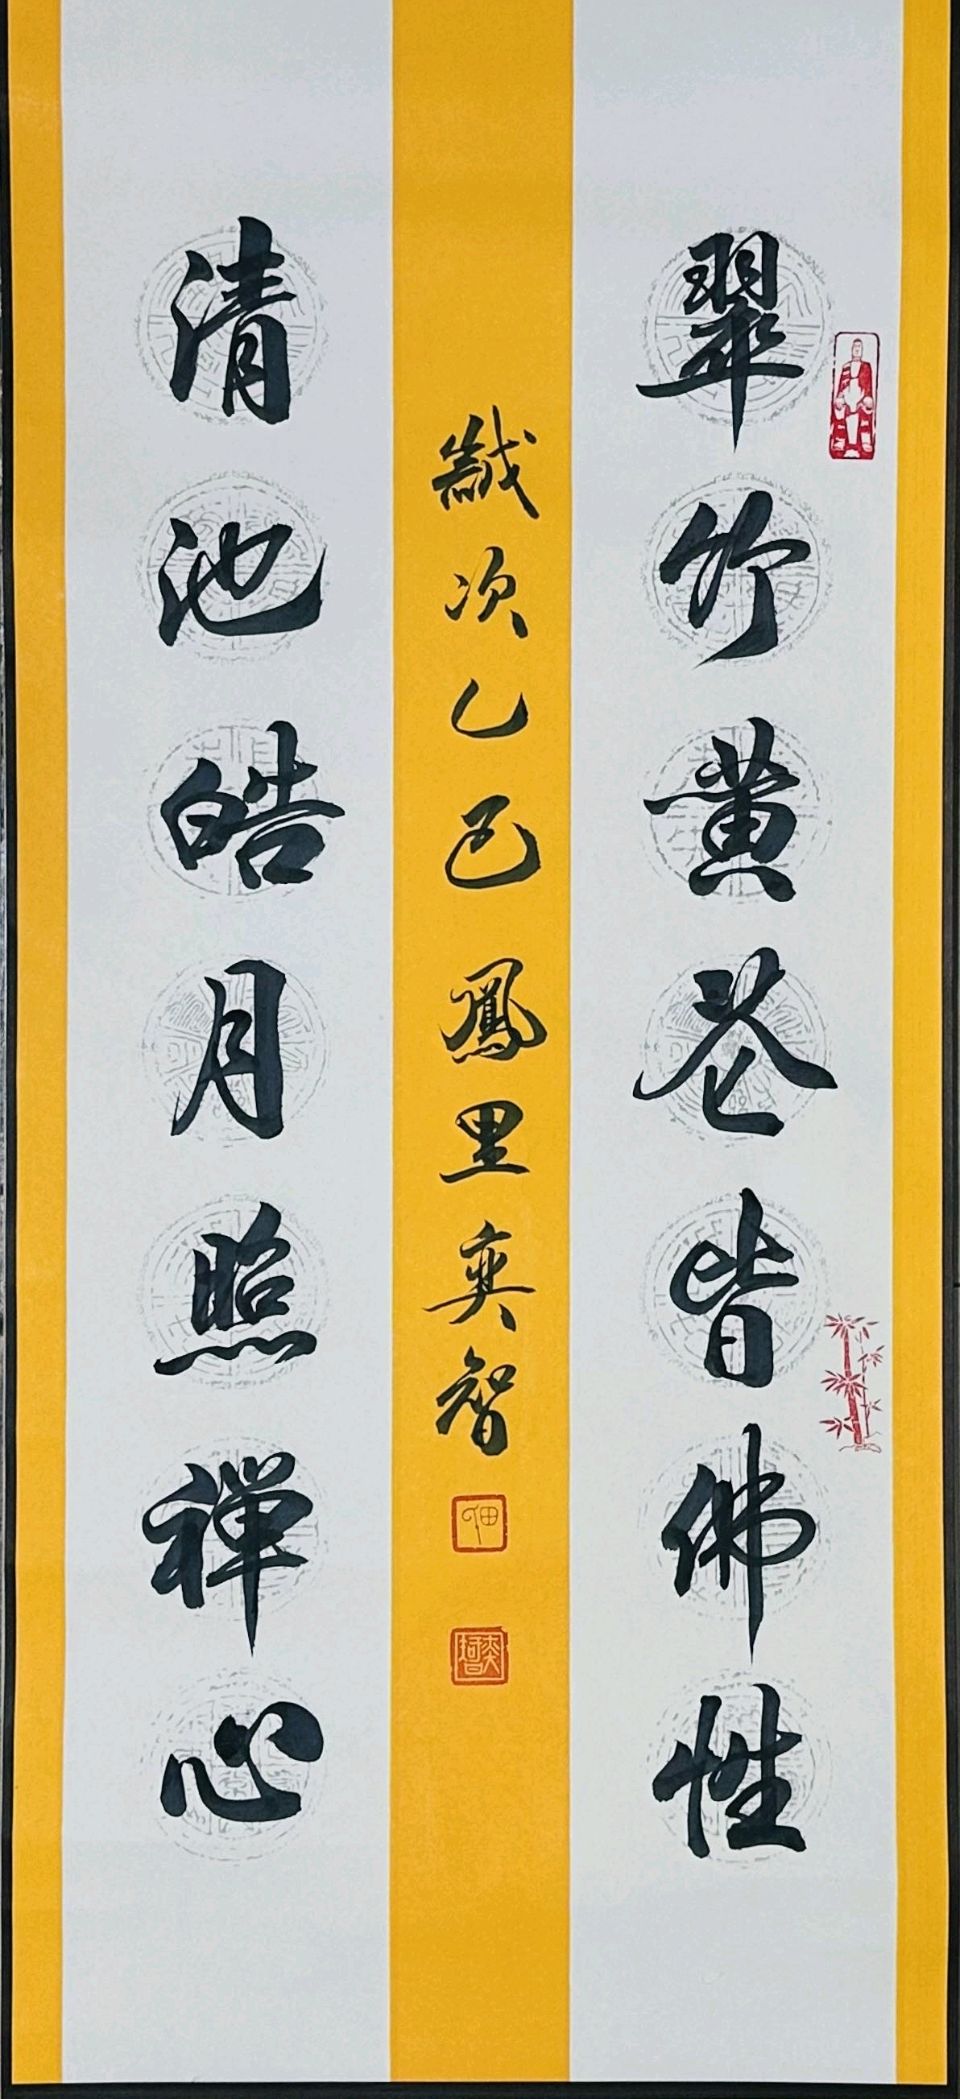 翠竹黃花皆佛性
歲次乙巳鳳里奕智
清池皓月照禪心